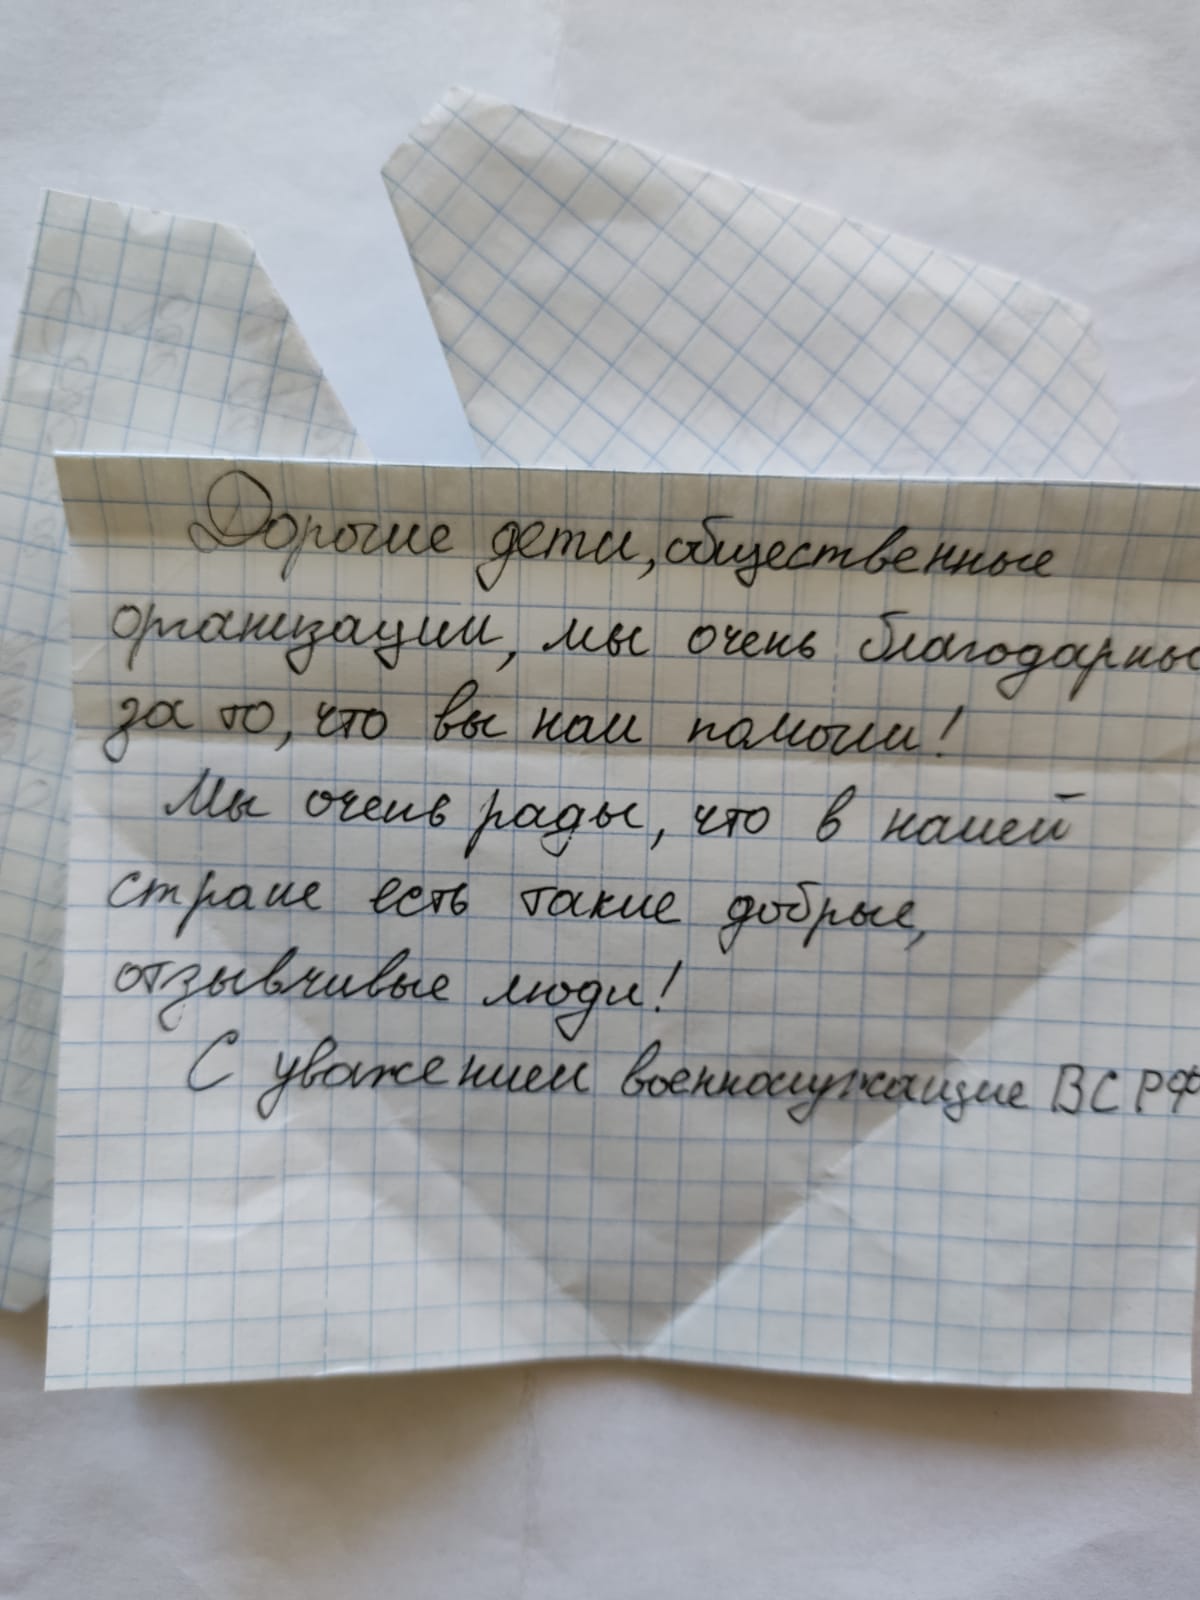 Дорогие дети, общественные
организации, мы очень благодарны
за то, что вы нам помогли!
Мы очень рады, что в нашей
стране есть такие добрые,
отзывчивые люди!
С уважением военнослужащие ВС РФ